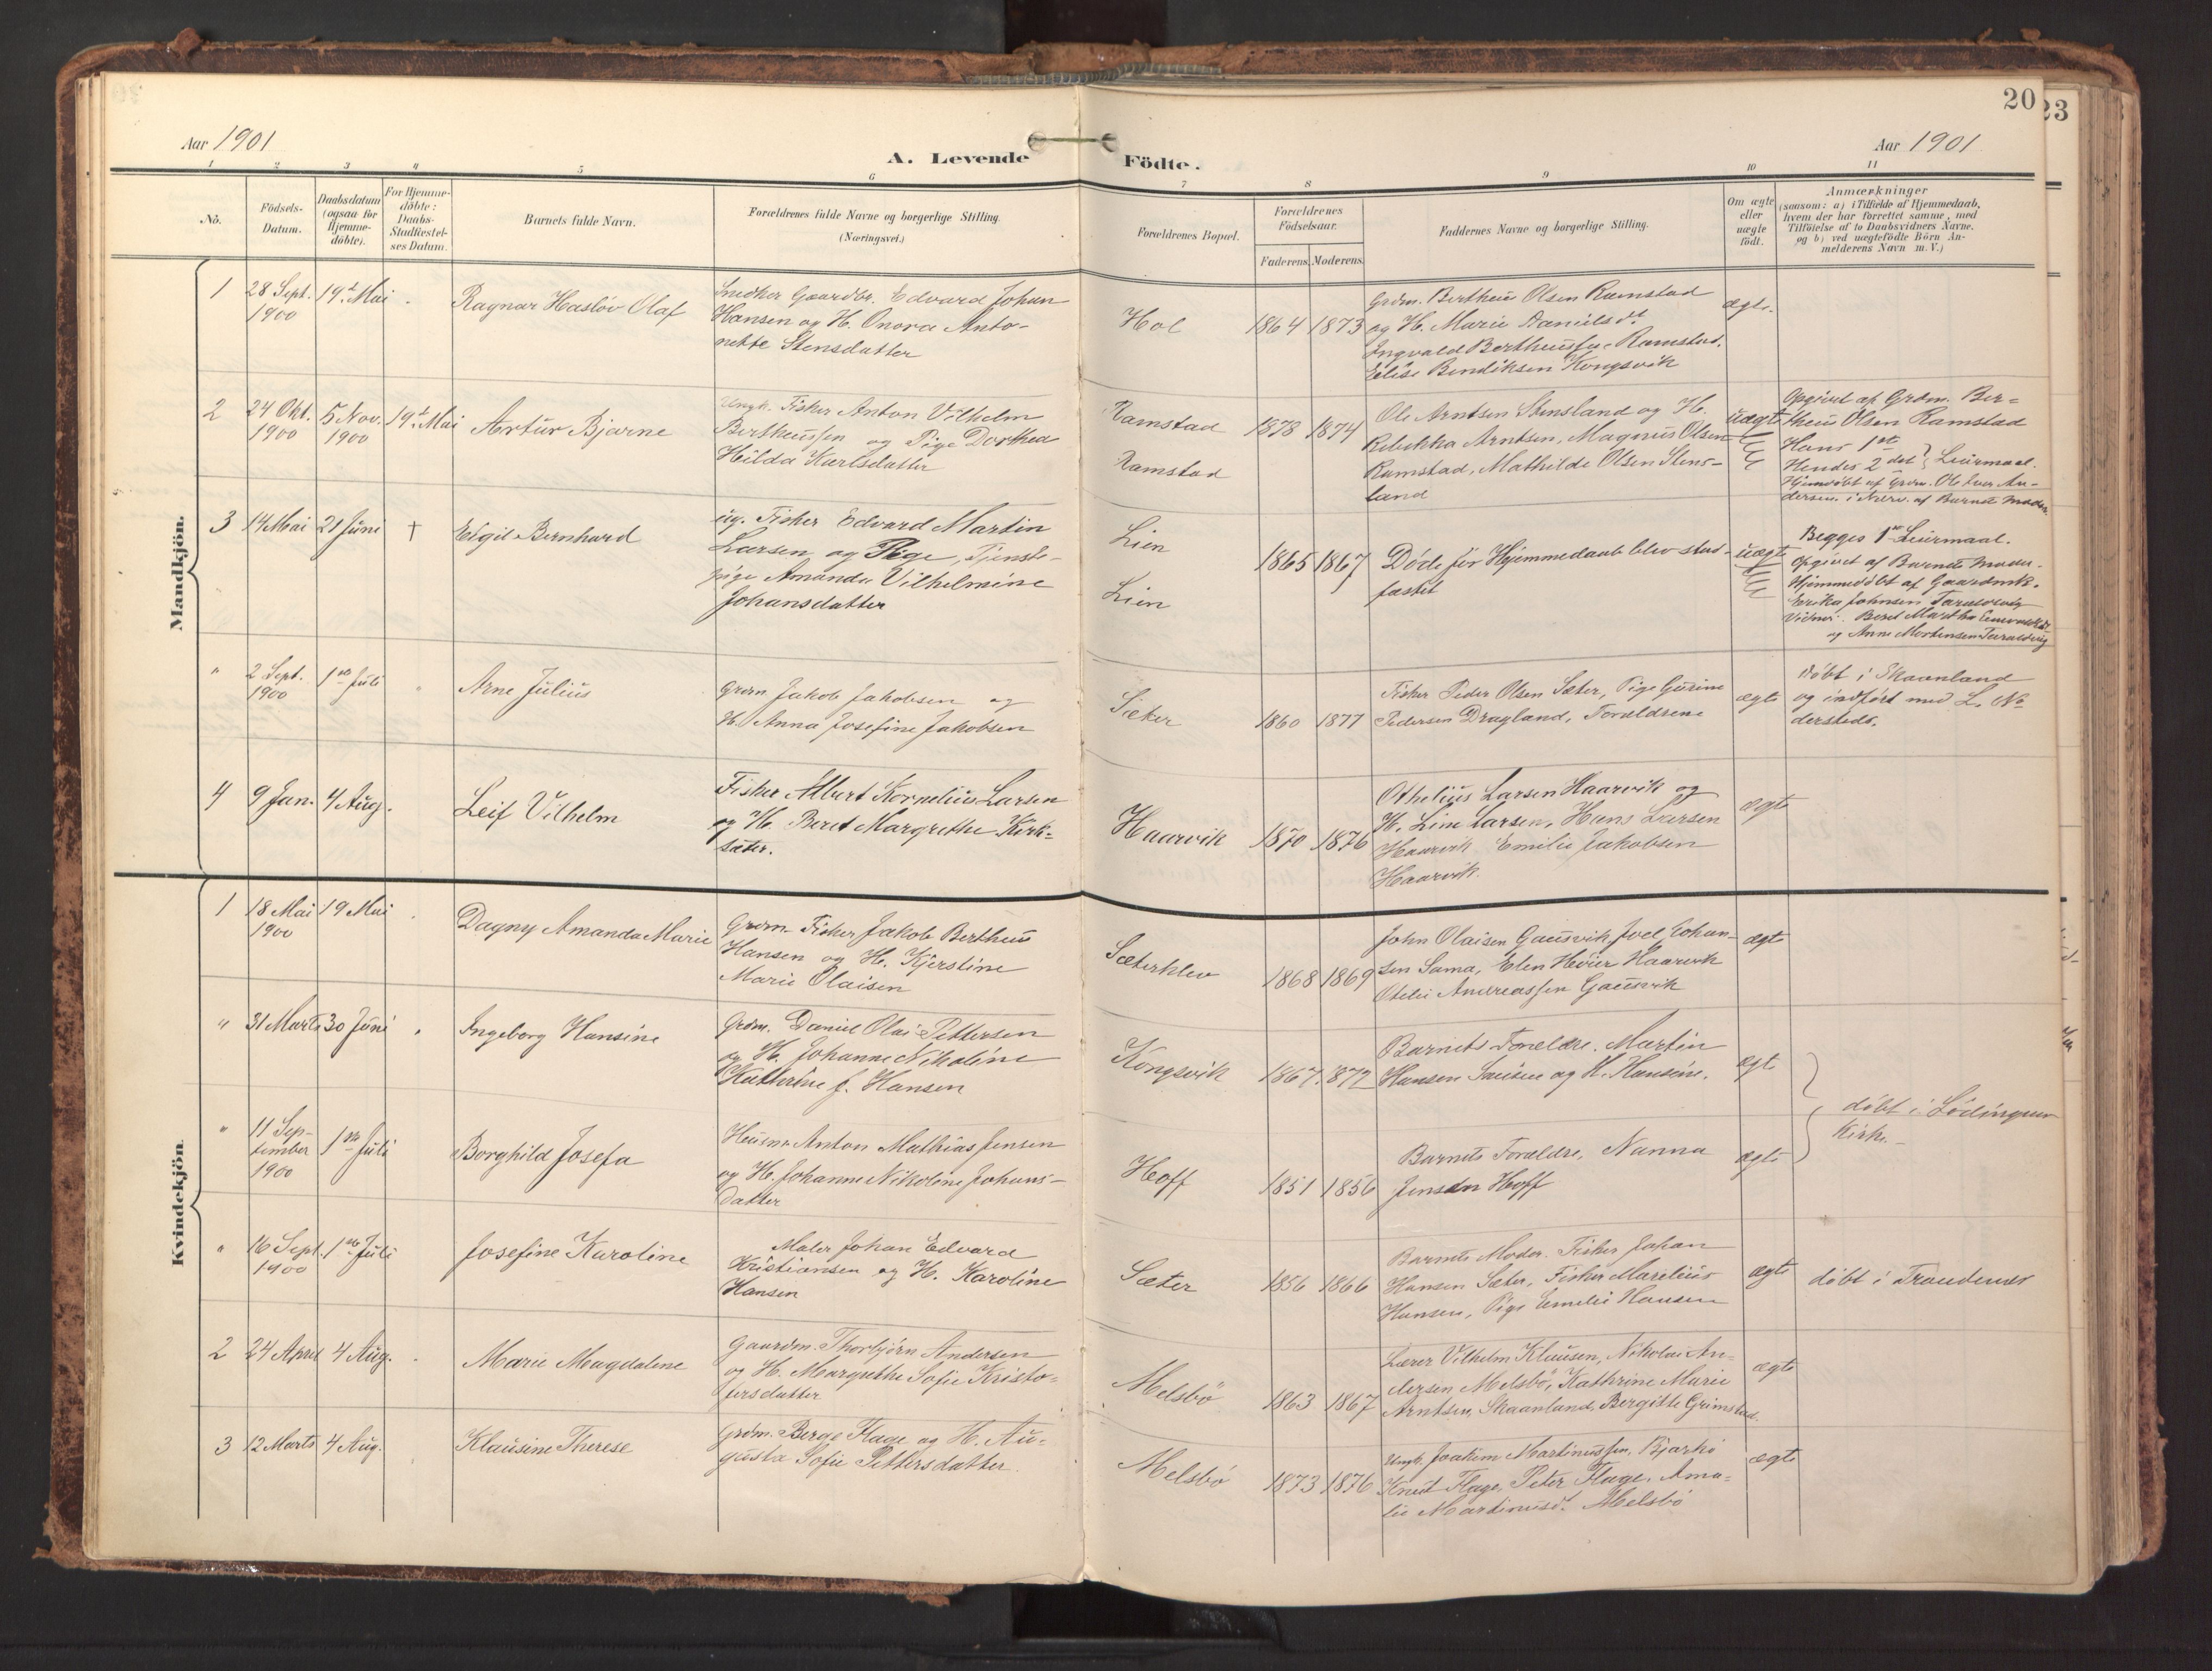 20
23
Aar 1901
A. Levende
Födte.
Aar 1901
1 2 3 4 5 6 7 8 9 10 11
Nö.
Födsels-
Datum.
Daabsdatum
(ogsaa for
Hjemme-
döbte).
For Hjemme-
döbte:
Daabs-
Stadfæstel-
ses Datum.
Barnets fulde Navn.
Forældrenes fulde Navne og borgerlige Stilling.
(Næringsvei.)
Forældrenes Bopæl.
Forældrenes
Födselsaar.
Faderens. Moderens.
Faddernes Navne og borgerlige Stilling.
Om ægte
eller
uægte
födt.
Anmærkninger
(saasom: a) i Tilfælde af Hjemmedaab,
hvem der har forrettet samme, med
Tilföielse af to Daabsvidners Navne,
og b) ved uægtefödte Börn An-
melderens Navn m. V.)
Mandkjön.
1
28 Sept.
1900
19de Mai
Ragnar Hasløv Olaf
Snedker Gaardbr. Edvard Johan
Hansen og H. Onora Anto-
nette Stensdatter
Hol
1864 1873
Grdm. Bertheus Olsen Ramstad
og H. Marie Danielsdt.
Ingvald Bertheussen Ramstad.
Elise Bendiksen Kongsvik
ægte.
2
24 Okt.
1900
5 Nov.
1900
19de Mai
Artur Bjarne
Ungk. Fisker Anton Vilhelm
Bertheussen og Pige Dorthea
Hilda Karlsdatter
Ramstad
Ramstad
1878 1874
Ole Arntsen Stensland og H.
Rebekka Arntsen, Magnus Olsen
Ramstad, Mathilde Olsen Stens-
land
uægte
Opgivet af Grdm. Ber-
theus Olsen Ramstad
Hans 1ste
Hendes 2det } Leiermaal.
Hjemdøbt af Grdm. Ole Iver An-
dersen i Nærv. af Barnets Moder.
3
14 Mai
21 Juni
†
Eigil Bernhard
ug. Fisker Edvard Martin
Larsen og Pige, Tjeneste-
pige Amanda Vilhelmine
Johansdatter
Lien
Lien
1865 1867
Døde før Hjemmedaab blev stad-
fæstet
uægte
Begges 1ste Leiermaal.
Opgivet af Barnets Moder.
Hjemmedøbt af Gaardmk.
Erika Johnsen Taraldsvig
Vidner: Beret Martha
og Anne Mortensen Taraldsvig
"
2 Sept.
1900
1ste Juli
"
Arne Julius
Grdm. Jakob Jakobsen og
H. Anna Josefine Jakobsen
Sæter
1860 1877
Fisker Peder Olsen Sæter, Pige Gusine
Pedersen Dragland, Forældrene
ægte
Døbt i Skaanland
og indført med L. No
dersteds.
4
9 Jan.
4 Aug.
Leif Vilhelm
Fisker Albert Kornelius Larsen
og H. Beret Margrethe Kirk-
sæter.
Haarvik
1870 1876
Othelius Larsen Haarvik og
H. Line Larsen, Hans Larsen
Haarvik Emilie Jakobsen
Haarvik.
ægte
Kvindekjön.
1
18 Mai
1900
19 Mai
Dagny Amanda Marie
Grdm. Fisker Jakob Bertheus
Hansen og H. Kjerstine
Marie Olaisen
Sæterklev
1868 1869
John Olaisen Gausvik, Joel Johan-
sen Sama, Elen Heier Haarvik
Otelie Andreassen Gausvik
ægte
"
31 Marts
30 Juni
"
Ingeborg Hansine
Grdm. Daniel Olai Pettersen
og H. Johanne Nikoline
Kathrine f. Hansen
Kongsvik
1867 1872
Barnets Forældre. Martin
Hansen og H. Hansine.
ægte
døbt i Lödingen
Kirke
"
11 Sep-
tember
1900
1ste Juli
Borghild Josefa
Husm. Anton Mathias Jensen
og H. Johanne Nikoline Johans-
datter
Hoff
1851 1856
Barnets Forældre, Nanna
Jensen Hoff
ægte
"
16 Sept.
1900
1ste Juli
Josefine Karoline
Maler Johan Edvard
Kristiansen og H. Karoline
Hansen
Sæter
1856 1866
Barnets Moder. Fisker Johan
Hansen Sæter, Fisker Marelius
Hansen, Pige Emelie Hansen
ægte
døbt i Trondenæs
2
24 April
4 Aug.
Marie Magdalene
Gaardm. Thorbjørn Andersen
og H. Margrethe Sofie Kristo-
fersdatter
Melsbö
1863 1867
Lærer Vilhelm Klausen, Nikolai An-
dersen Melsbö, Kathrine Marie
Arntsen, Skaanland, Bergitte Grimstad.
ægte
3
12 Marts
4 Aug.
Klausine Therese
Grdm. Berge Flage og H. Au-
gusta Sofie Pettersdatter.
Melsbö
1873 1876
Ungk. Joakim Martinussen, Bjarkö
Knut Flage, Peter Flage, Ama-
lie Martinusdt. Melsbö
ægte